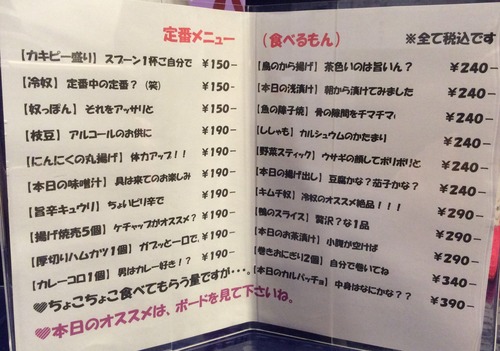 定番メニュー
【カキピー盛り】 スプーン1杯ご自分で ¥150-
【冷奴】 定番中の定番？（笑） ¥150-
【奴っぽん】 それをアッサリと ¥150-
【枝豆】 アルコールのお供に ¥190-
【にんにくの丸揚げ】 体力アップ！！ ¥190-
【本日の味噌汁】 具は来てのお楽しみ ¥190-
【旨辛キュウリ】 ちょいピリ辛で ¥190-
【揚げ焼売5個】 ケチャップがオススメ？ ¥190-
【厚切りハムカツ1個】 ガブッと一口で、 ¥190-
【カレーコロ1個】 男はカレー好き！？ ¥190-
♥ちょこちょこ食べてもらう量ですが・・・。
♥本日のオススメは、ボードを見て下さいね。
（食べるもん） ※全て税込です
【鳥のから揚げ】 茶色いのは旨いん？ ¥240-
【本日の浅漬け】 朝から漬けてみました ¥240-
【魚の障子焼】 骨の隙間をチマチマ ¥240-
【ししゃも】 カルシュウムのかたまり ¥240-
【野菜スティック】 ウサギの顔してポリポリと ¥240-
【本日の揚げ出し】 豆腐かな？茄子かな？ ¥240-
【キムチ奴】 冷奴のオススメ絶品！！！ ¥290-
【鴨のスライス】 贅沢？な1品 ¥290-
【本日のお茶漬け】 小腹が空けば ¥290-
【巻きおにぎり2個】 自分で巻いてね ¥340-
【本日のカルパッチョ】 中身はなにかな？？ ¥390-